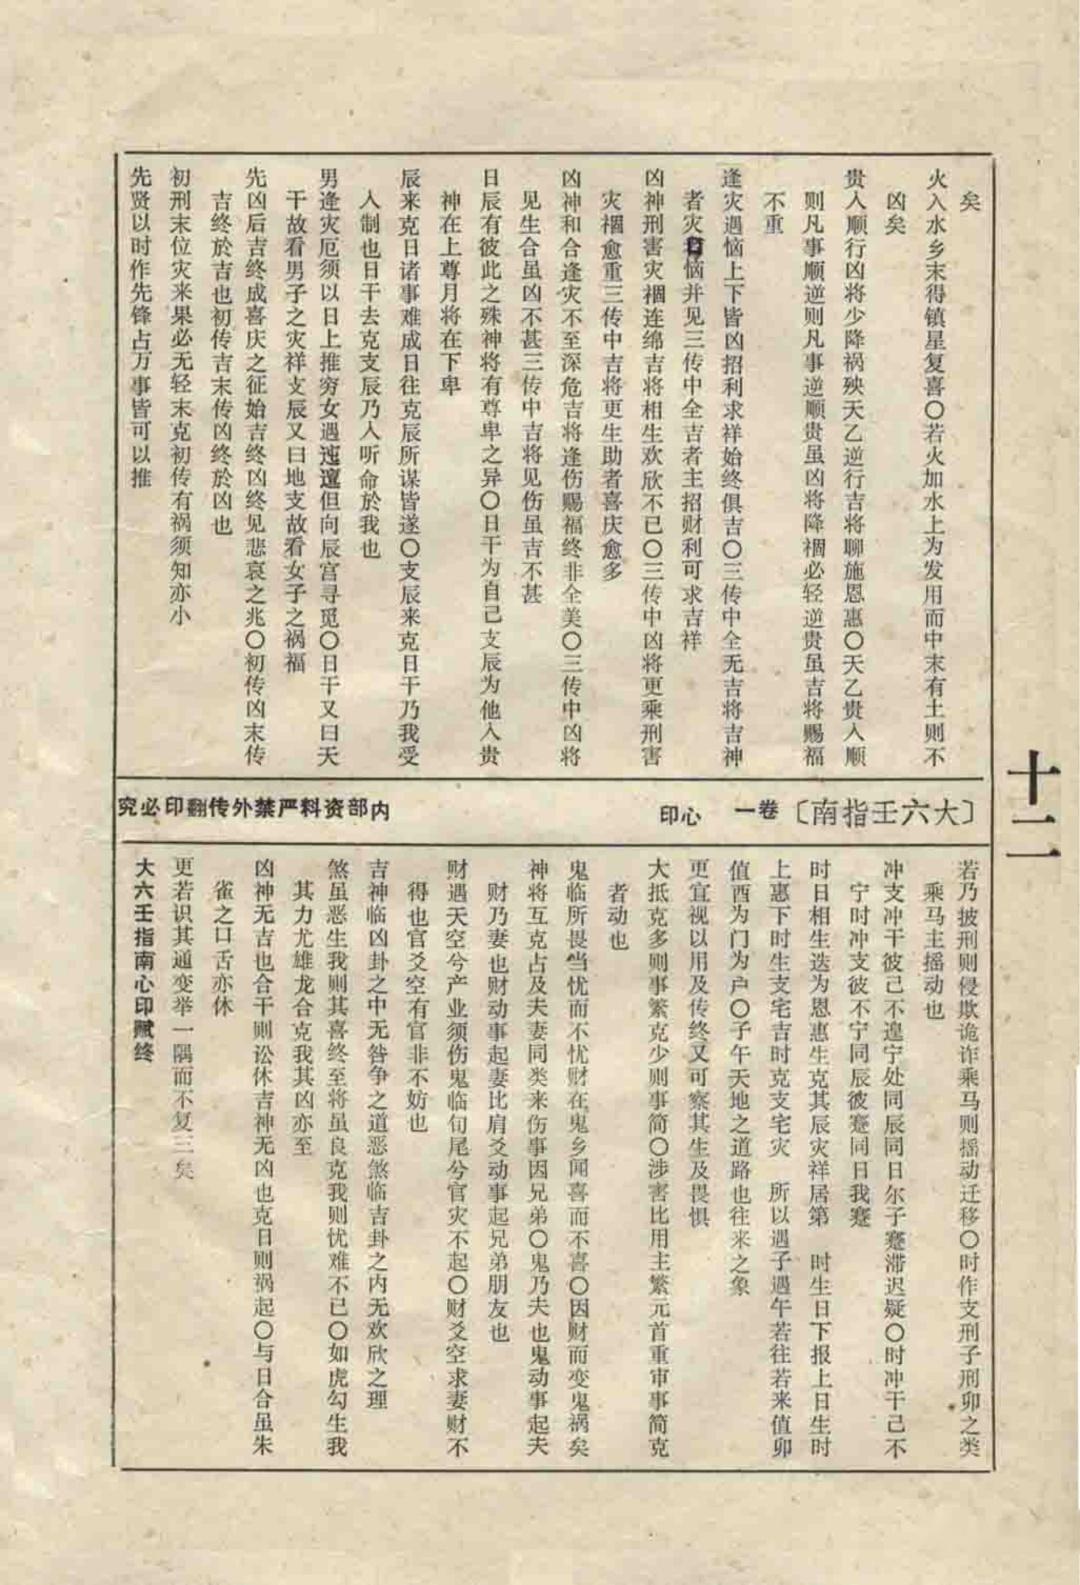 矣
火入水乡末得镇星复喜〇若火加水上为发用而中末有土则不
凶矣
贵人顺行凶将少降祸殃天乙逆行吉将聊施恩惠〇天乙贵人顺
则凡事顺逆则凡事逆顺贵虽凶将降祸必轻逆贵虽吉将赐福
不重
逢灾遇恼上下皆凶招利求祥始终俱吉〇三传中全无吉将吉神
者灾恼并见三传中全吉者主招财利可求吉祥
凶神刑害灾祸连绵吉将相生欢欣不已〇三传中凶将更乘刑害
灾祸愈重三传中吉将更生助者喜庆愈多
凶神和合逢灾不至深危吉将逢伤赐福终非全美〇三传中凶将
见生合虽凶不甚三传中吉将见伤虽吉不甚
日辰有彼此之殊神将有尊卑之异〇日干为自己支辰为他人贵
神在上尊月将在下卑
辰来克日诸事难成日往克辰所谋皆遂〇支辰来克日干乃我受
人制也日干去克支辰乃人听命於我也
男逢灾厄须以日上推穷女遇迍邅但向辰宫寻觅〇日干又曰天
干故看男子之灾祥支辰又曰地支故看女子之祸福
先凶后吉终成喜庆之征始吉终凶终见悲哀之兆〇初传凶末传
吉终於吉也初传吉末传凶终於凶也
初刑末位灾来果必无轻末克初传有祸须知亦小
先贤以时作先锋占万事皆可以推
十二
〔大六壬指南〕 卷一 心印
内部资料严禁外传翻印必究
若乃披刑则侵欺诡诈乘马则摇动迁移〇时作支刑子刑卯之类
乘马主摇动也
冲支冲干彼己不遑宁处同辰同日尔子蹇滞迟疑〇时冲干己不
宁时冲支彼不宁同辰彼蹇同日我蹇
时日相生迭为恩惠生克其辰灾祥居第 时生日下报上日生时
上惠下时生支宅吉时克支宅灾 所以遇子遇午若往若来值卯
值酉为门为户〇子午天地之道路也往来之象
更宜视以用及传终又可察其生及畏惧
大抵克多则事繁克少则事简〇涉害比用主繁元首重审事简克
者动也
鬼临所畏当忧而不忧财在鬼乡闻喜而不喜〇因财而变鬼祸矣
神将互克占及夫妻同类来伤事因兄弟〇鬼乃夫也鬼动事起夫
财乃妻也财动事起妻比肩爻动事起兄弟朋友也
财遇天空兮产业须伤鬼临旬尾兮官灾不起〇财爻空求妻财不
得也官爻空有官非不妨也
吉神临凶卦之中无咎争之道恶煞临吉卦之内无欢欣之理
煞虽恶生我则其喜终至将虽良克我则忧难不已〇如虎勾生我
其力尤雄龙合克我其凶亦至
凶神无吉也合干则讼休吉神无凶也克日则祸起〇与日合虽朱
雀之口舌亦休
更若识其通变举一隅而不复三矣
大六壬指南心印赋终